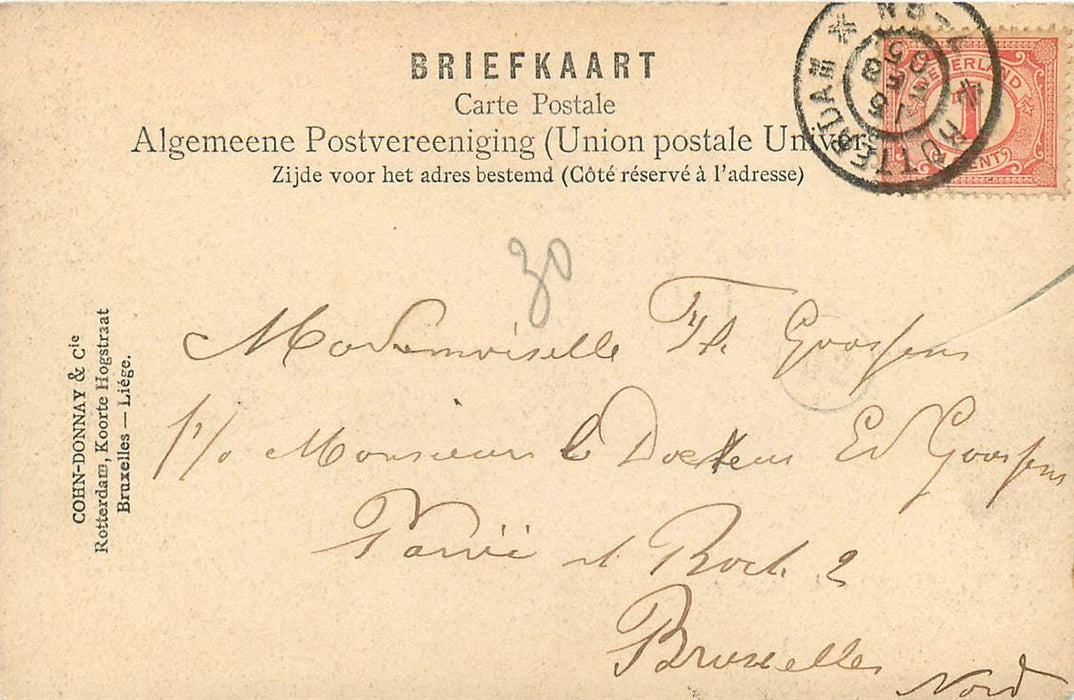 BRIEFKAART
Carte Postale
Algemeene Postvereeniging (Union postale Univer
Zijde voor het adres bestemd (Côté réservé à l'adresse)
NEDERLAND
1
CENT
ROTTERDAM
30
Mademoiselle Th. Goossens
p/o Monsieur le Docteur Ed Goossens
Roch 2
Bruxelles
Nord
COHN-DONNAY & Cie
Rotterdam, Koorte Hogstraat
Bruxelles — Liége.